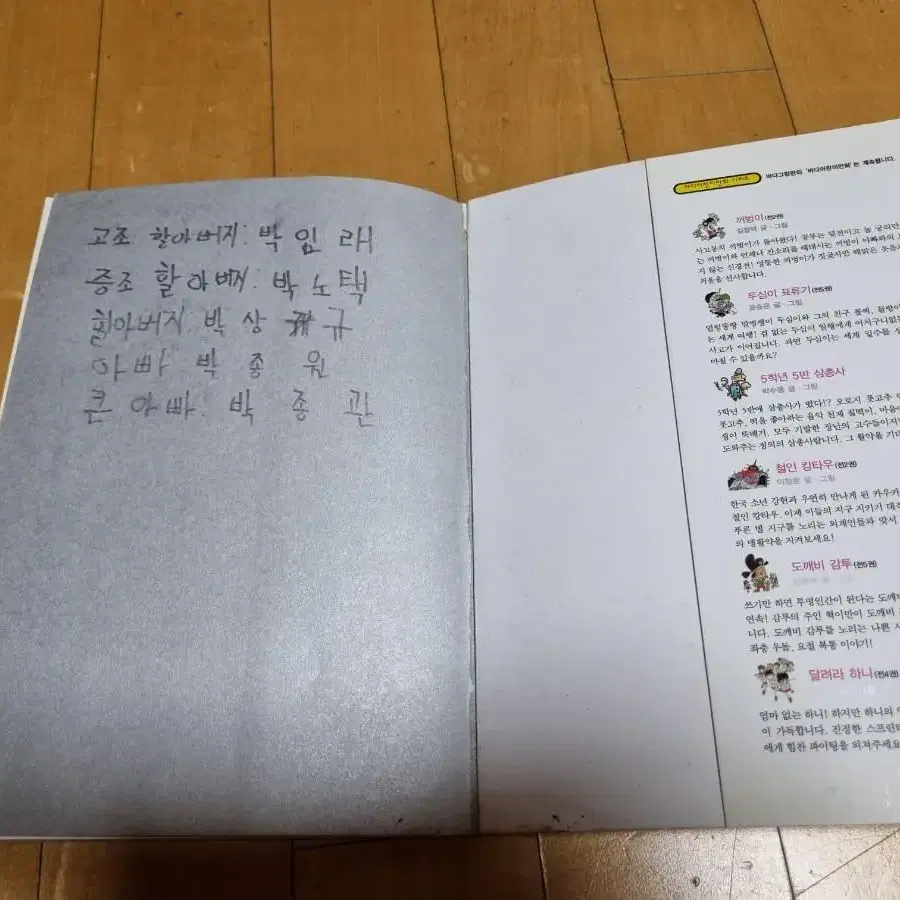 고조 할아버지: 박 임 래
증조 할아버지: 박 노 택
할아버지 박 상 규
아빠. 박 종 원
큰 아빠. 박 종 관
바다그림판의 '바다어린이만화'는 계속됩니다.
꺼벙이(전2권)
길창덕 글·그림
사고뭉치 꺼벙이가 돌아왔다! 공부는 뒷전이고 늘 궁리만
는 꺼벙이와 언제나 잔소리를 해대시는 꺼벙이 아빠와의
지 않는 신경전! 엉뚱한 꺼벙이가 짓궂지만 해맑은 웃음
겨움을 선사합니다.
두심이 표류기(전5권)
윤승운 글·그림
는 세계 여행! 겁 없는 두심이 일행에게 어처구니없
사고가 이어집니다. 과연 두심이는 세계 일주를 성
마칠 수 있을까요?
5학년 5반 삼총사
박수동 글·그림
5학년 5반에 삼총사가 떴다!? 오로지 풋고추
풋고추, 떡을 좋아하는 음악 천재 찰떡이, 마음
쟁이 뚝배기. 모두 기발한 장난의 고수들이지만
도와주는 정의의 삼총사랍니다. 그 활약을 기대
철인 캉타우(전2권)
이정문 글·그림
한국 소년 강현과 우연히 만나게 된 카우카
철인 캉타우. 이제 이들의 지구 지키기 대작
푸른 별 지구를 노리는 외계인들과 맞서
의 맹활약을 지켜보세요!
도깨비 감투(전5권)
쓰기만 하면 투명인간이 된다는 도깨비
연속! 감투의 주인 혁이만이 도깨비
니다. 도깨비 감투를 노리는 나쁜 사
좌충우돌, 요절 복통 이야기!
달려라 하니(전4권)
엄마 없는 하니! 하지만 하니의
이 가득합니다. 진정한 스프린터
에게 힘찬 파이팅을 외쳐주세요